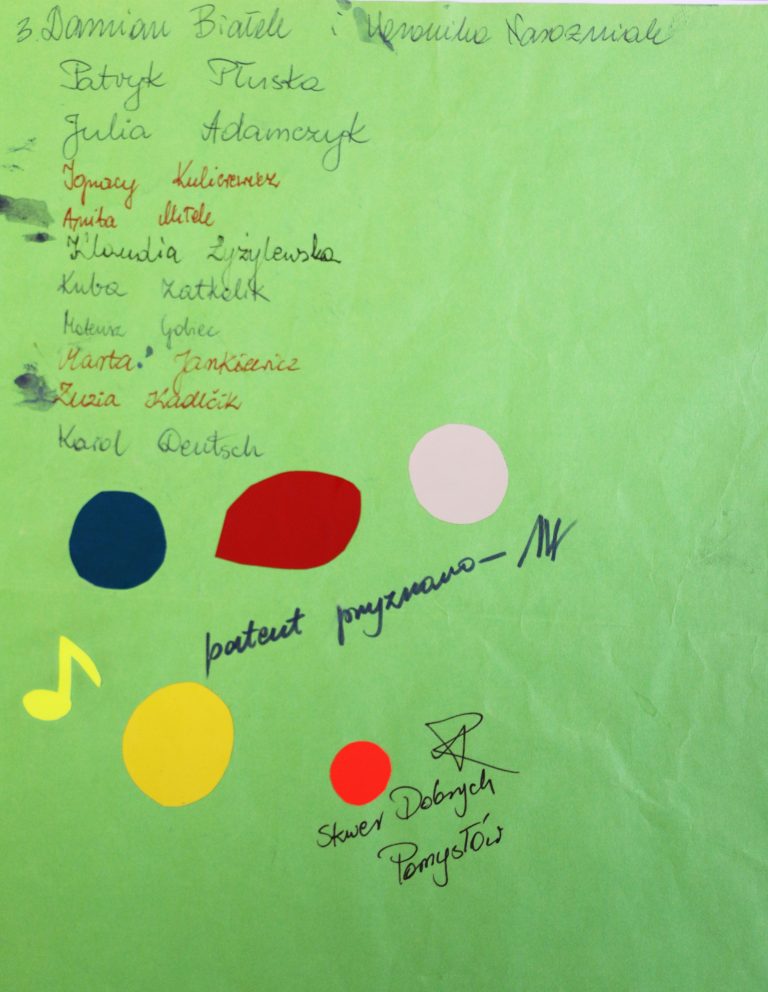 3. Damian Białek i Weronika
Patryk Płuska
Julia Adamczyk
Ignacy Kuliciewicz
Anita Miłek
Klaudia Łyżylewska
Kuba Zatkalik
Mateusz Gobiec
Marta Jankiewicz
Zuzia Kadlčik
Karol Deutsch
patent przyznano –
Skwer Dobrych
Pomysłów